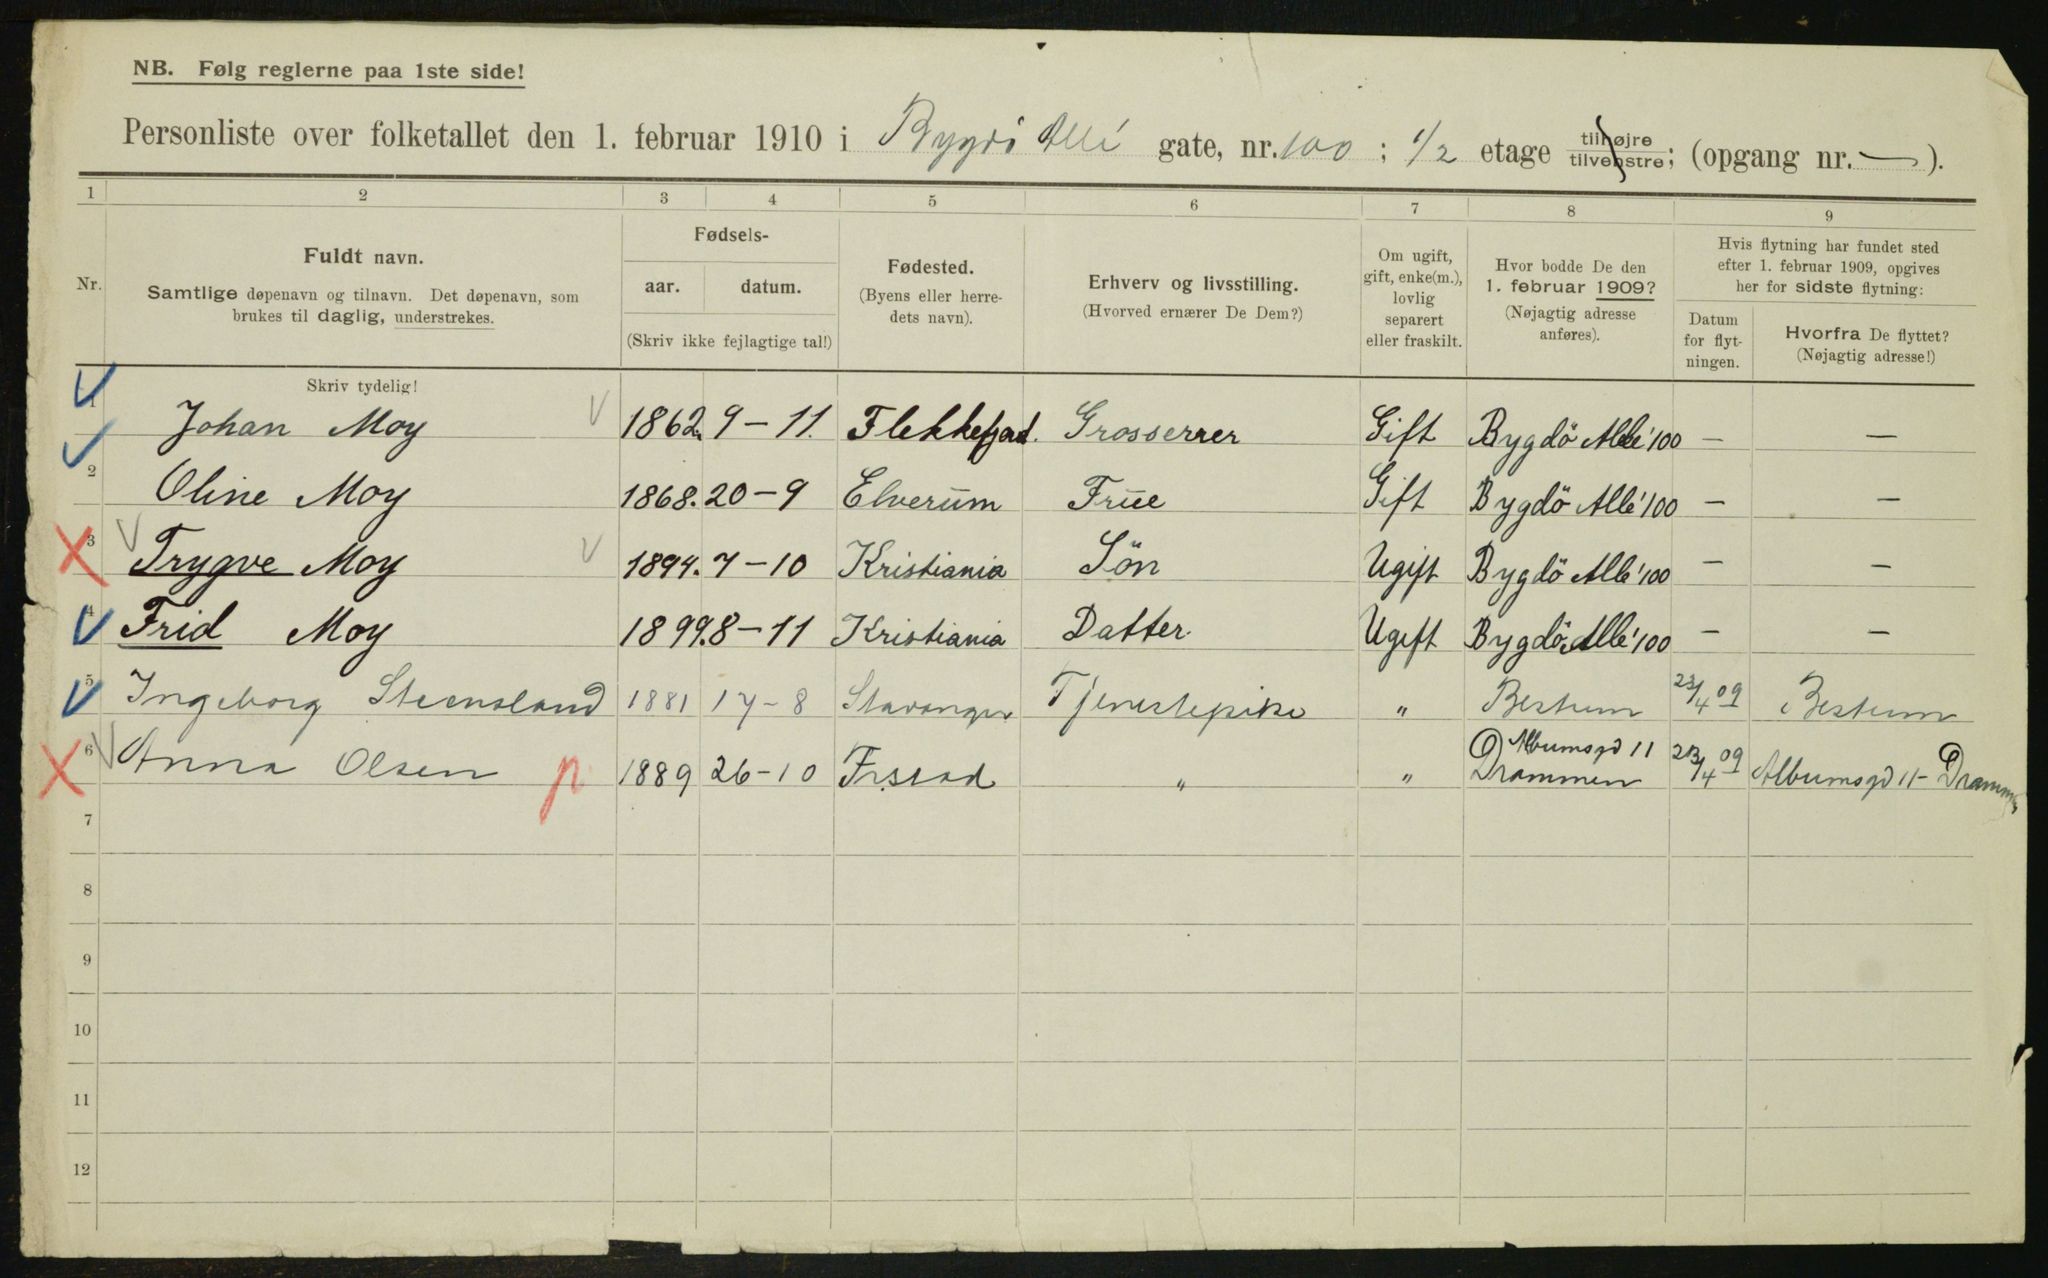 NB. Følg reglerne paa 1ste side!
Personliste over folketallet den 1. februar 1910 i Bygdö Allé gate, nr. 100 ; 1/2 etage tilhøjre tilvenstre; (opgang nr. — ).
1 2 3 4 5 6 7 8 9
Nr.
Fuldt navn.
Samtlige døpenavn og tilnavn. Det døpenavn, som
brukes til daglig, understrekes.
Fødsels-
aar. datum.
(Skriv ikke fejlagtige tal!)
Fødested.
(Byens eller herre-
dets navn).
Erhverv og livsstilling.
(Hvorved ernærer De Dem?)
Om ugift,
gift, enke(m.),
lovlig
separert
eller fraskilt.
Hvor bodde De den
1. februar 1909?
(Nøjagtig adresse
anføres).
Hvis flytning har fundet sted
efter 1. februar 1909, opgives
her for sidste flytning:
Datum
for flyt-
ningen.
Hvorfra De flyttet?
(Nøjagtig adresse!)
Skriv tydelig!
1 Johan Moy 1862. 9-11. Flekkefjord. Grosserrer Gift Bygdö Allé 100 — —
2 Oline Moy 1868. 20-9 Elverum Frue Gift Bygdö Allé 100 — —
3 Trygve Moy 1894. 7-10 Kristiania Sön Ugift Bygdö Allé 100 — —
4 Frid Moy 1899. 8-11 Kristiania Datter Ugift Bygdö Allé 100 — —
5 Ingeborg Steensland 1881 17-8 Stavanger Tjenestepike " Bestum 23/4 09 Bestum
6 Anna Olsen p 1889 26-10 " " Albumsgd 11 Drammen 23/4 09 Albumsgd 11 - Drammen
7
8
9
10
11
12